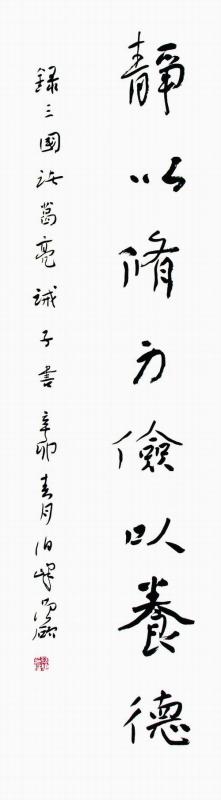 靜以脩身儉以養德
錄三國諸葛亮誡子書辛卯春月